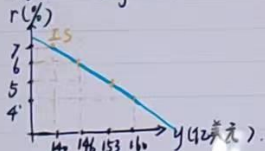 r(%)
IS
7
6
5
4
140 146 153 160 y(亿美元).